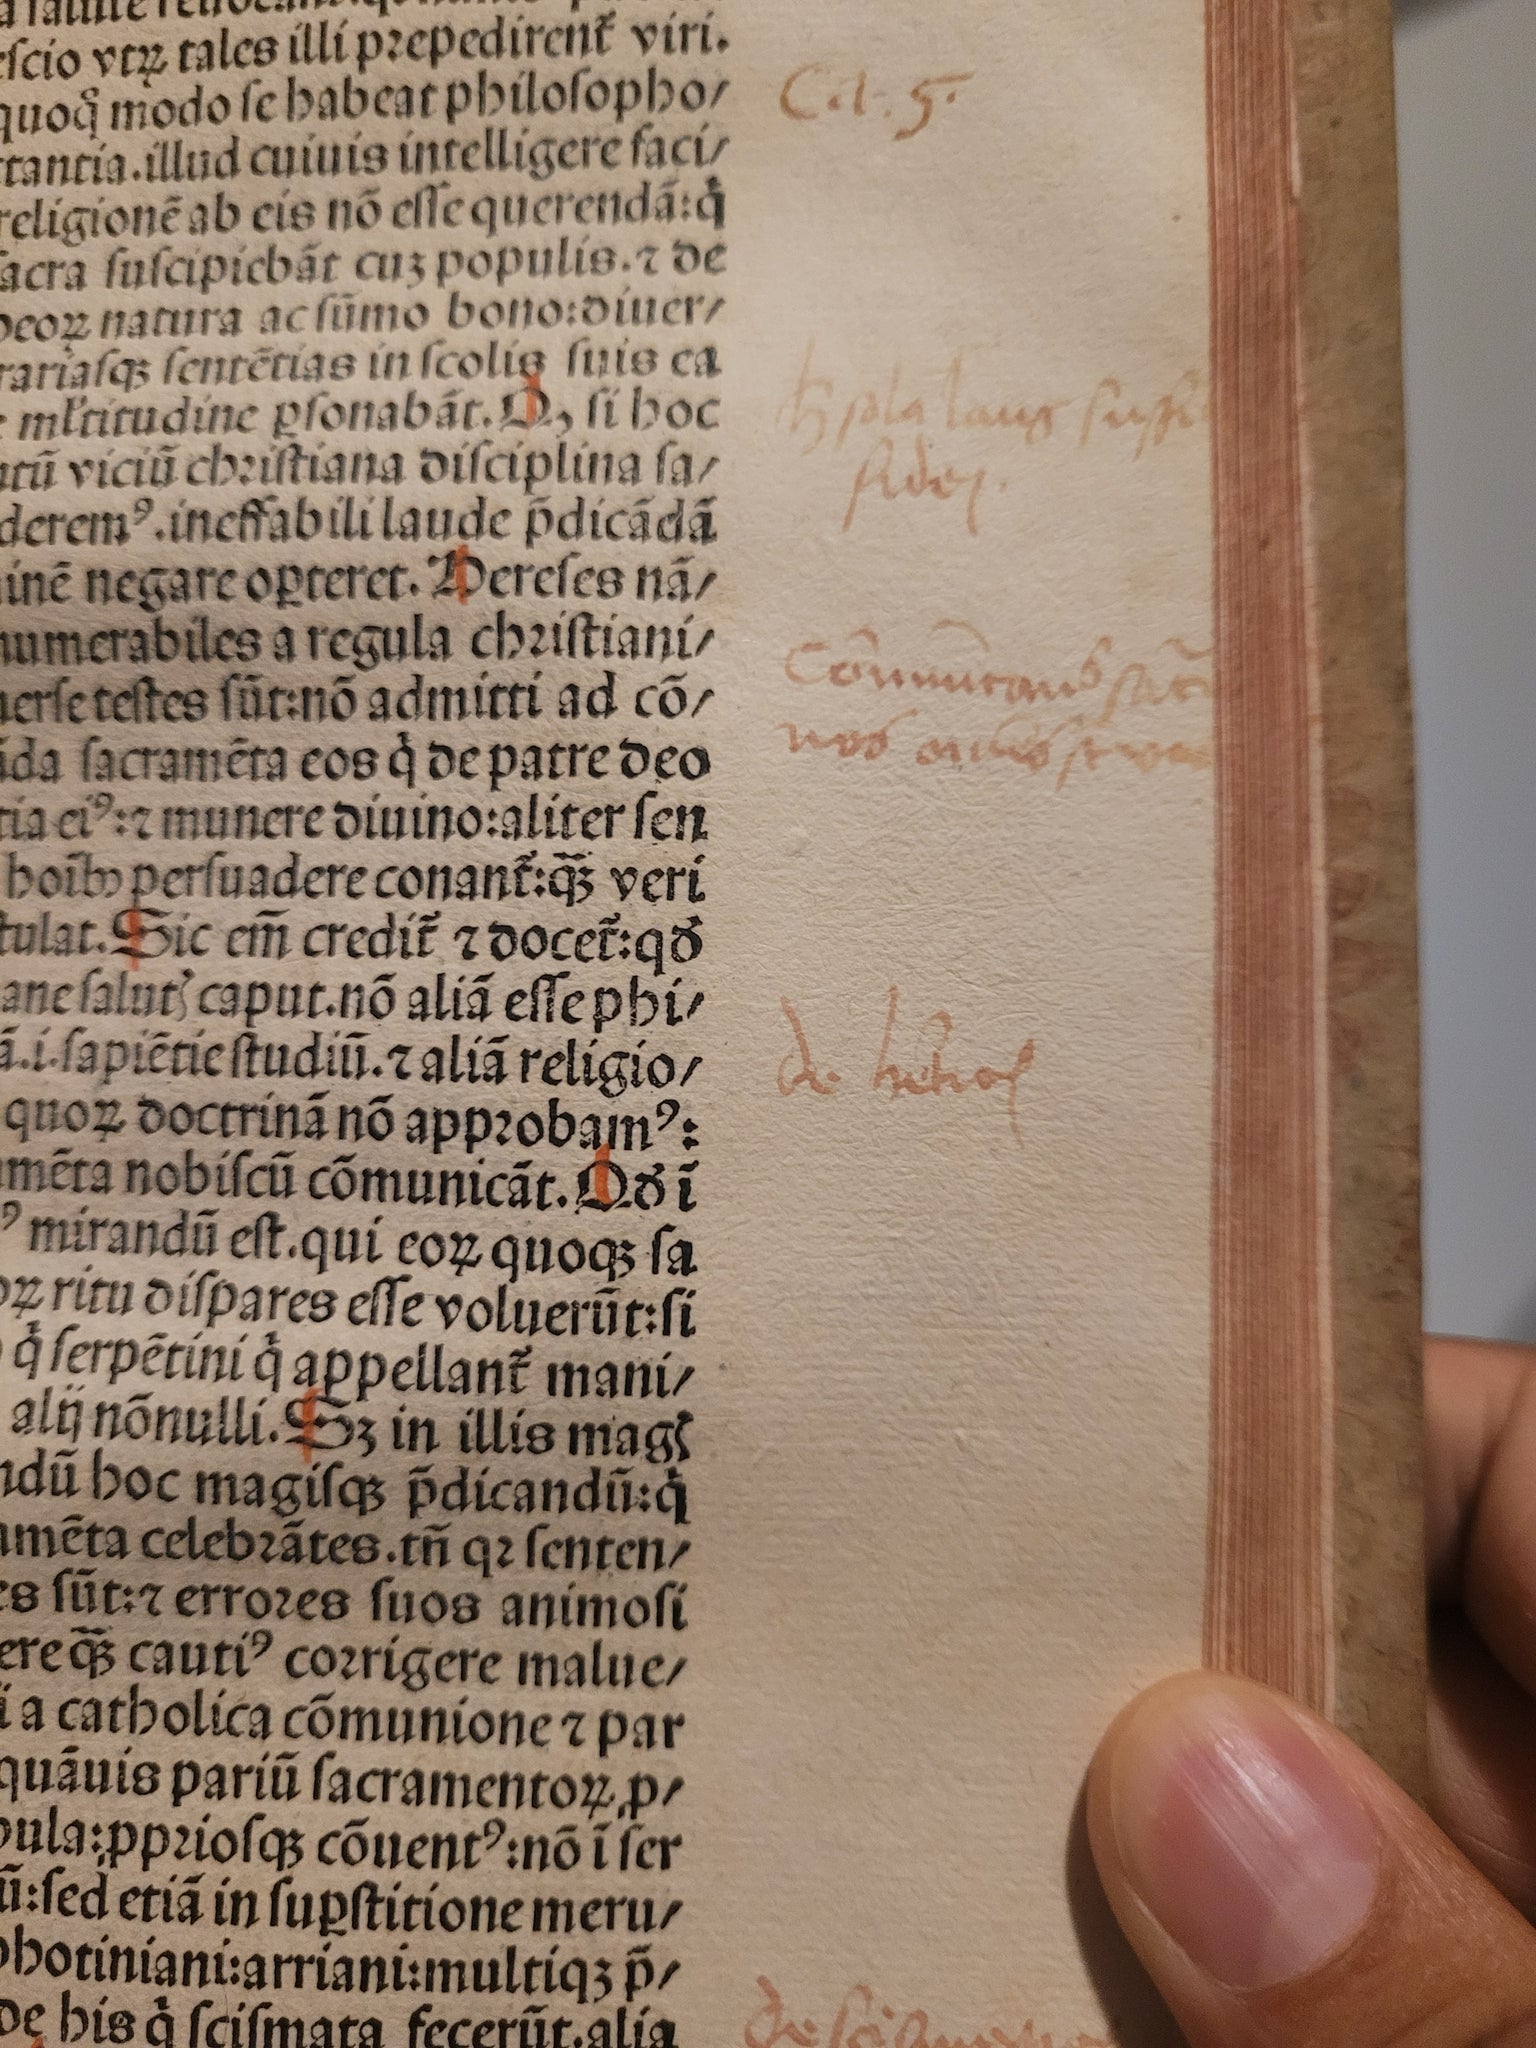 a salute reuocant.
escio vtꝝ tales illi prepedirent̃ viri.
quoq̊ modo ſe habeat philoſopho/
ctantia.illud cuiuis intelligere faci/
religionē ab eis nō eſſe querendā:q̇
ſacra ſuſcipiebāt cuȝ populis.⁊ de
deoꝝ natura ac ſūmo bono:diuer/
rariaſqȝ ſentētias in ſcolis ſuis ea
e ml̃titudine ꝑſonabāt.Qꝫ ſi hoc
ntū viciū chriſtiana diſciplina ſa/
deremꝰ.ineffabili laude p̄dicādā
minē negare oꝑteret.Hereſes nā/
numerabiles a regula chriſtiani/
uerſe teſtes ſūt:nō admitti ad cō/
āda ſacramēta eos q̇ de patre deo
tia eiꝰ:⁊ munere diuino:aliter ſen
hoībꝫ perſuadere conant̃:q̄ȝ veri
ſtulat.Sic em̄ credit̃ ⁊ docet̃:qđ
ane ſalutꝭ caput.nō aliā eſſe phi/
ā.i.ſapiētie ſtudiū.⁊ aliā religio/
quoꝝ doctrinā nō approbamꝰ:
amēta nobiſcū cōmunicāt.Qđ ī
ꝰ mirandū eſt.qui eoꝝ quoqȝ ſa
oꝝ ritu diſpares eſſe voluerūt:ſi
q̇ ſerpētini q̇ appellant̃ mani/
alij nōnulli.Sȝ in illis magꝭ
ndū hoc magiſqȝ p̄dicandū:q̇
amēta celebrātes.tn̄ qꝛ ſenten/
es ſūt:⁊ errores ſuos animoſi
ere q̄ȝ cautiꝰ corrigere malue/
ī a catholica cōmunione ⁊ par
quāuis pariū ſacramentoꝝ ꝓ/
bula:ꝓprioſqȝ cōuentꝰ:nō ī ſer
ū:ſed etiā in ſuꝑſtitione meru/
photiniani:arriani:multiqȝ p̄/
de his q̇ ſciſmata fecerūt.alia
C.l.5.
fidei.